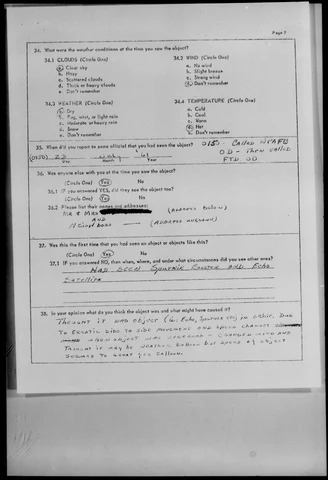 Page 7
34. What were the weather conditions at the time you saw the object?
34.1 CLOUDS (Circle One)
a. Clear sky
b. Hazy
c. Scattered clouds
d. Thick or heavy clouds
e. Don't remember
34.2 WIND (Circle One)
a. No wind
b. Slight breeze
c. Strong wind
d. Don't remember
34.3 WEATHER (Circle One)
a. Dry
b. Fog, mist, or light rain
c. Moderate or heavy rain
d. Snow
e. Don't remember
34.4 TEMPERATURE (Circle One)
a. Cold
b. Cool
c. Warm
d. Hot
e. Don't remember
35. When did you report to some official that you had seen the object?
(0150) 22 61
Day Month Year
0150 - Called WPAFB
OD - Then called
FTD OD
36. Was anyone else with you at the time you saw the object?
(Circle One) Yes No
36.1 IF you answered YES, did they see the object too?
(Circle One) Yes No
36.2 Please list their names and addresses:
MR & MRS
AND
37. Was this the first time that you had seen an object or objects like this?
(Circle One) Yes No
37.1 IF you answered NO, then when, where, and under what circumstances did you see other ones?
HAD SEEN SPUTNIK AND ECHO
SATELLITE
38. In your opinion what do you think the object was and what might have caused it?
THOUGHT IT WAS OBJECT (ie: ECHO, SPUTNIK ETC) IN ORBIT. DUE
TO ERRATIC SIDE TO SIDE MOVEMENT AND SPEED CHANGES
WHEN OBJECT WAS OVERHEAD - CHANGED MIND AND
THOUGHT IT MAY BE WEATHER BALLOON BUT SPEED OF OBJECT
SEEMED TO GREAT FOR BALLOON.